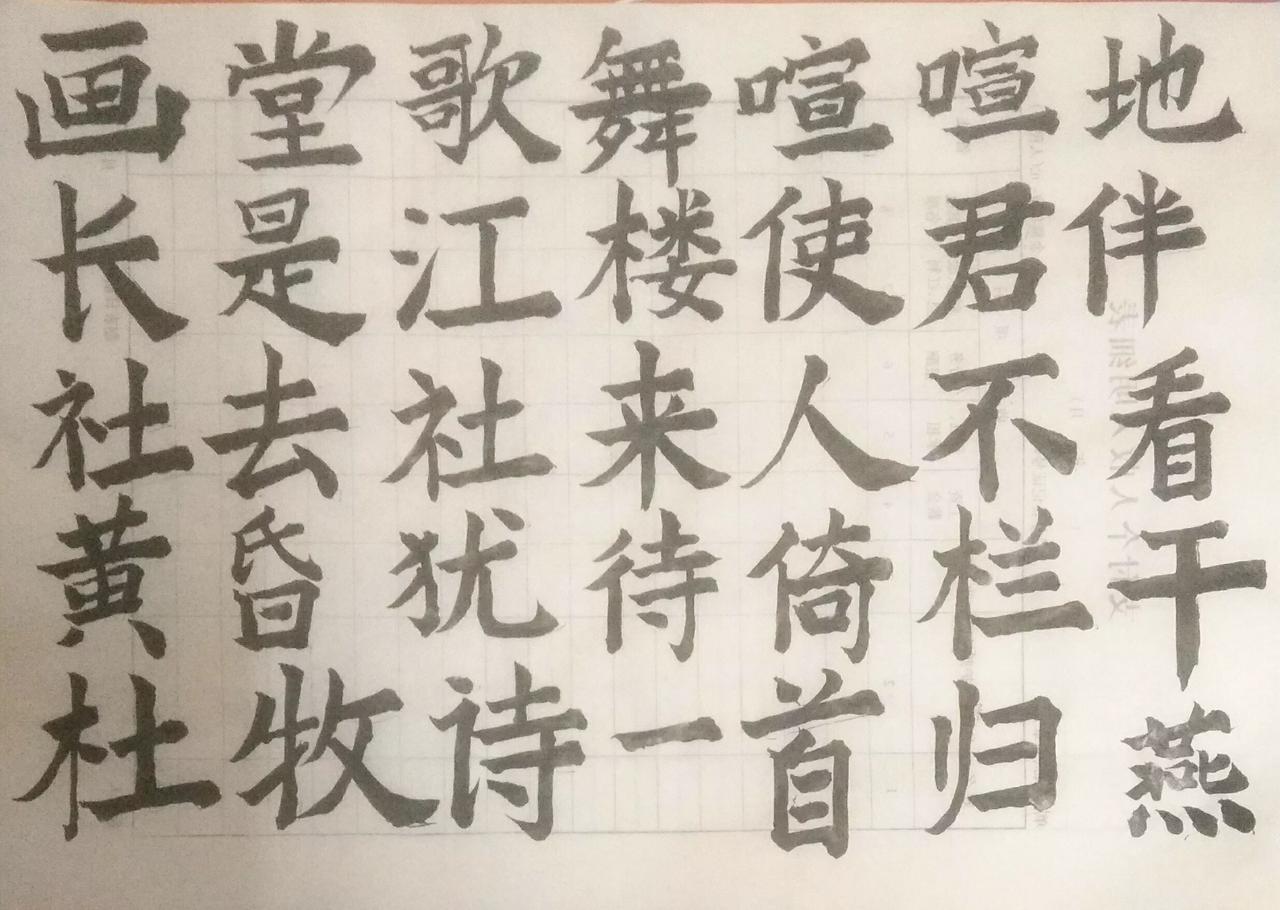 画堂歌舞喧喧地
长是江楼使君伴
社去社来人不看
黄昏犹待倚栏干
杜牧诗一首归燕